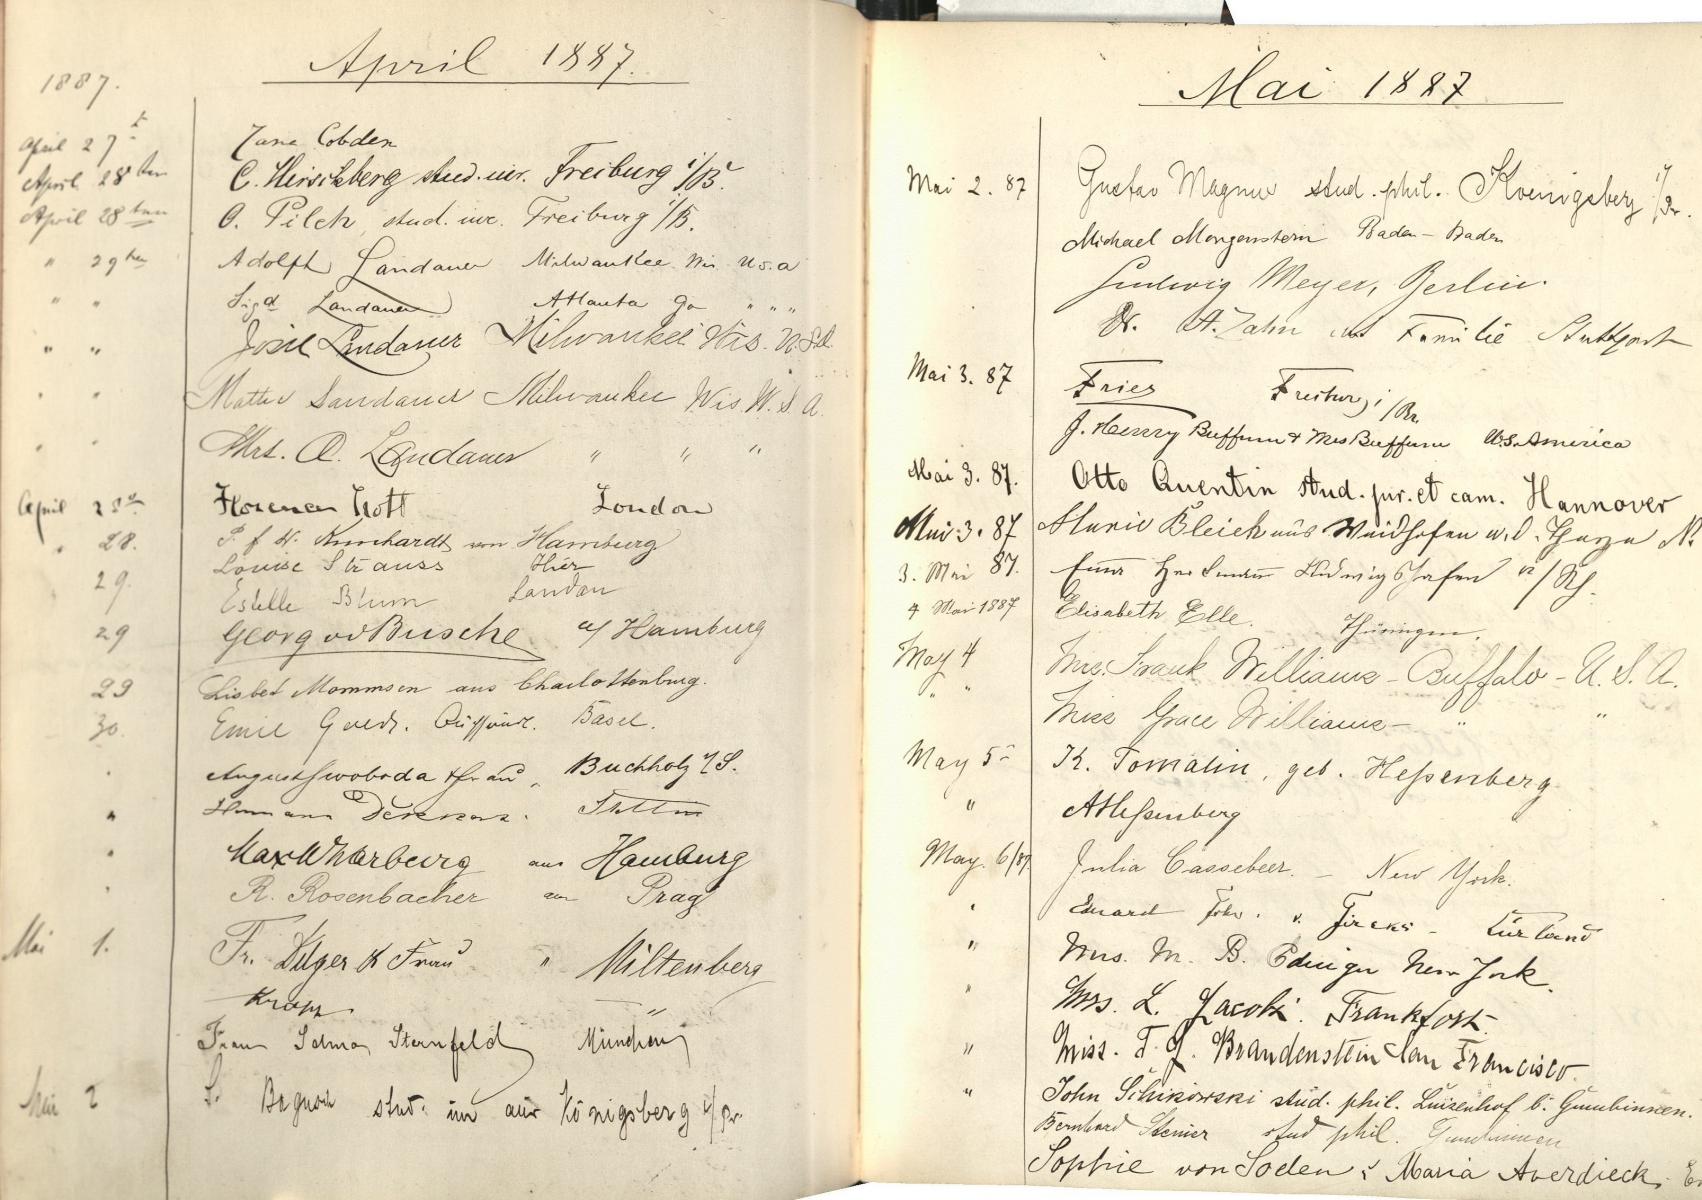 April 1887.
1887.
April 27t Jane Cobden
April 28ten C. Hirschberg stud. iur. Freiburg i/B.
April 28ten O. Pilch, stud. iur. Freiburg i/B.
" 29ten Adolph Landauer Milwaukee Wis U.S.a
" " Sigd Landauer Atlanta Ga " " "
" " Landauer Milwaukee Wis. U.S.A.
" " Landauer Milwaukee Wis. U.S.A.
" " Mrs. A. Landauer " " "
April Florence London
" 28. von Hamburg
Louise Strauss Hier
29. Estelle Blum Landau
29 Georg a/ Hamburg
29 Lisbet Mommsen aus Charlottenburg.
30. Emil Basel.
" August Swoboda & Frau, Buchholz i/S.
" Stettin
" Max Wharburg aus Hamburg
" R. Rosenbacher aus Prag
Mai 1. Fr. Dilger & Frau " Miltenberg
"
Frau Selma Sternfeld München
Mai 2 S. stud. iur aus Königsberg i/Pr
Mai 1887
Mai 2. 87 Gustav Magnus stud. phil. Koenigsberg i/Pr.
Michael Morgenstern Baden-Baden
Ludwig Meyer, Berlin.
Dr. A. Zahn und Familie Stuttgart
Mai 3. 87 Fries Freiburg i/Br.
J. Henry Buffum & Mrs Buffum U.S. America
Mai 3. 87. Otto Quentin stud. jur. et cam. Hannover
Mai 3. 87 Marie Bleich aus Waidhofen a. d. Thaya
3. Mai 87. Ludwigshafen a/Rh.
4 Mai 1887 Elisabeth Elle. Thüringen.
May 4 Mrs. Frank Williams - Buffalo - U.S.A.
" " Miss Grace Williams - " "
May 5 K. Tomalin, geb. Heßenberg
" A Heßenberg
May. 6/87. Julia Cassebeer. - New York.
" Eduard Frhr. v. Fircks - Kurland
" Mrs. M. B. Edinger New York.
" Mrs. L. Jacobi. Frankfort.
" Miss. F. J. Brandenstein San Francisco.
" John Schikowski stud. phil. Luisenhof b. Gumbinnen.
Bernhard Steiner stud phil. Gumbinnen
Sophie von Soden & Maria Averdieck.